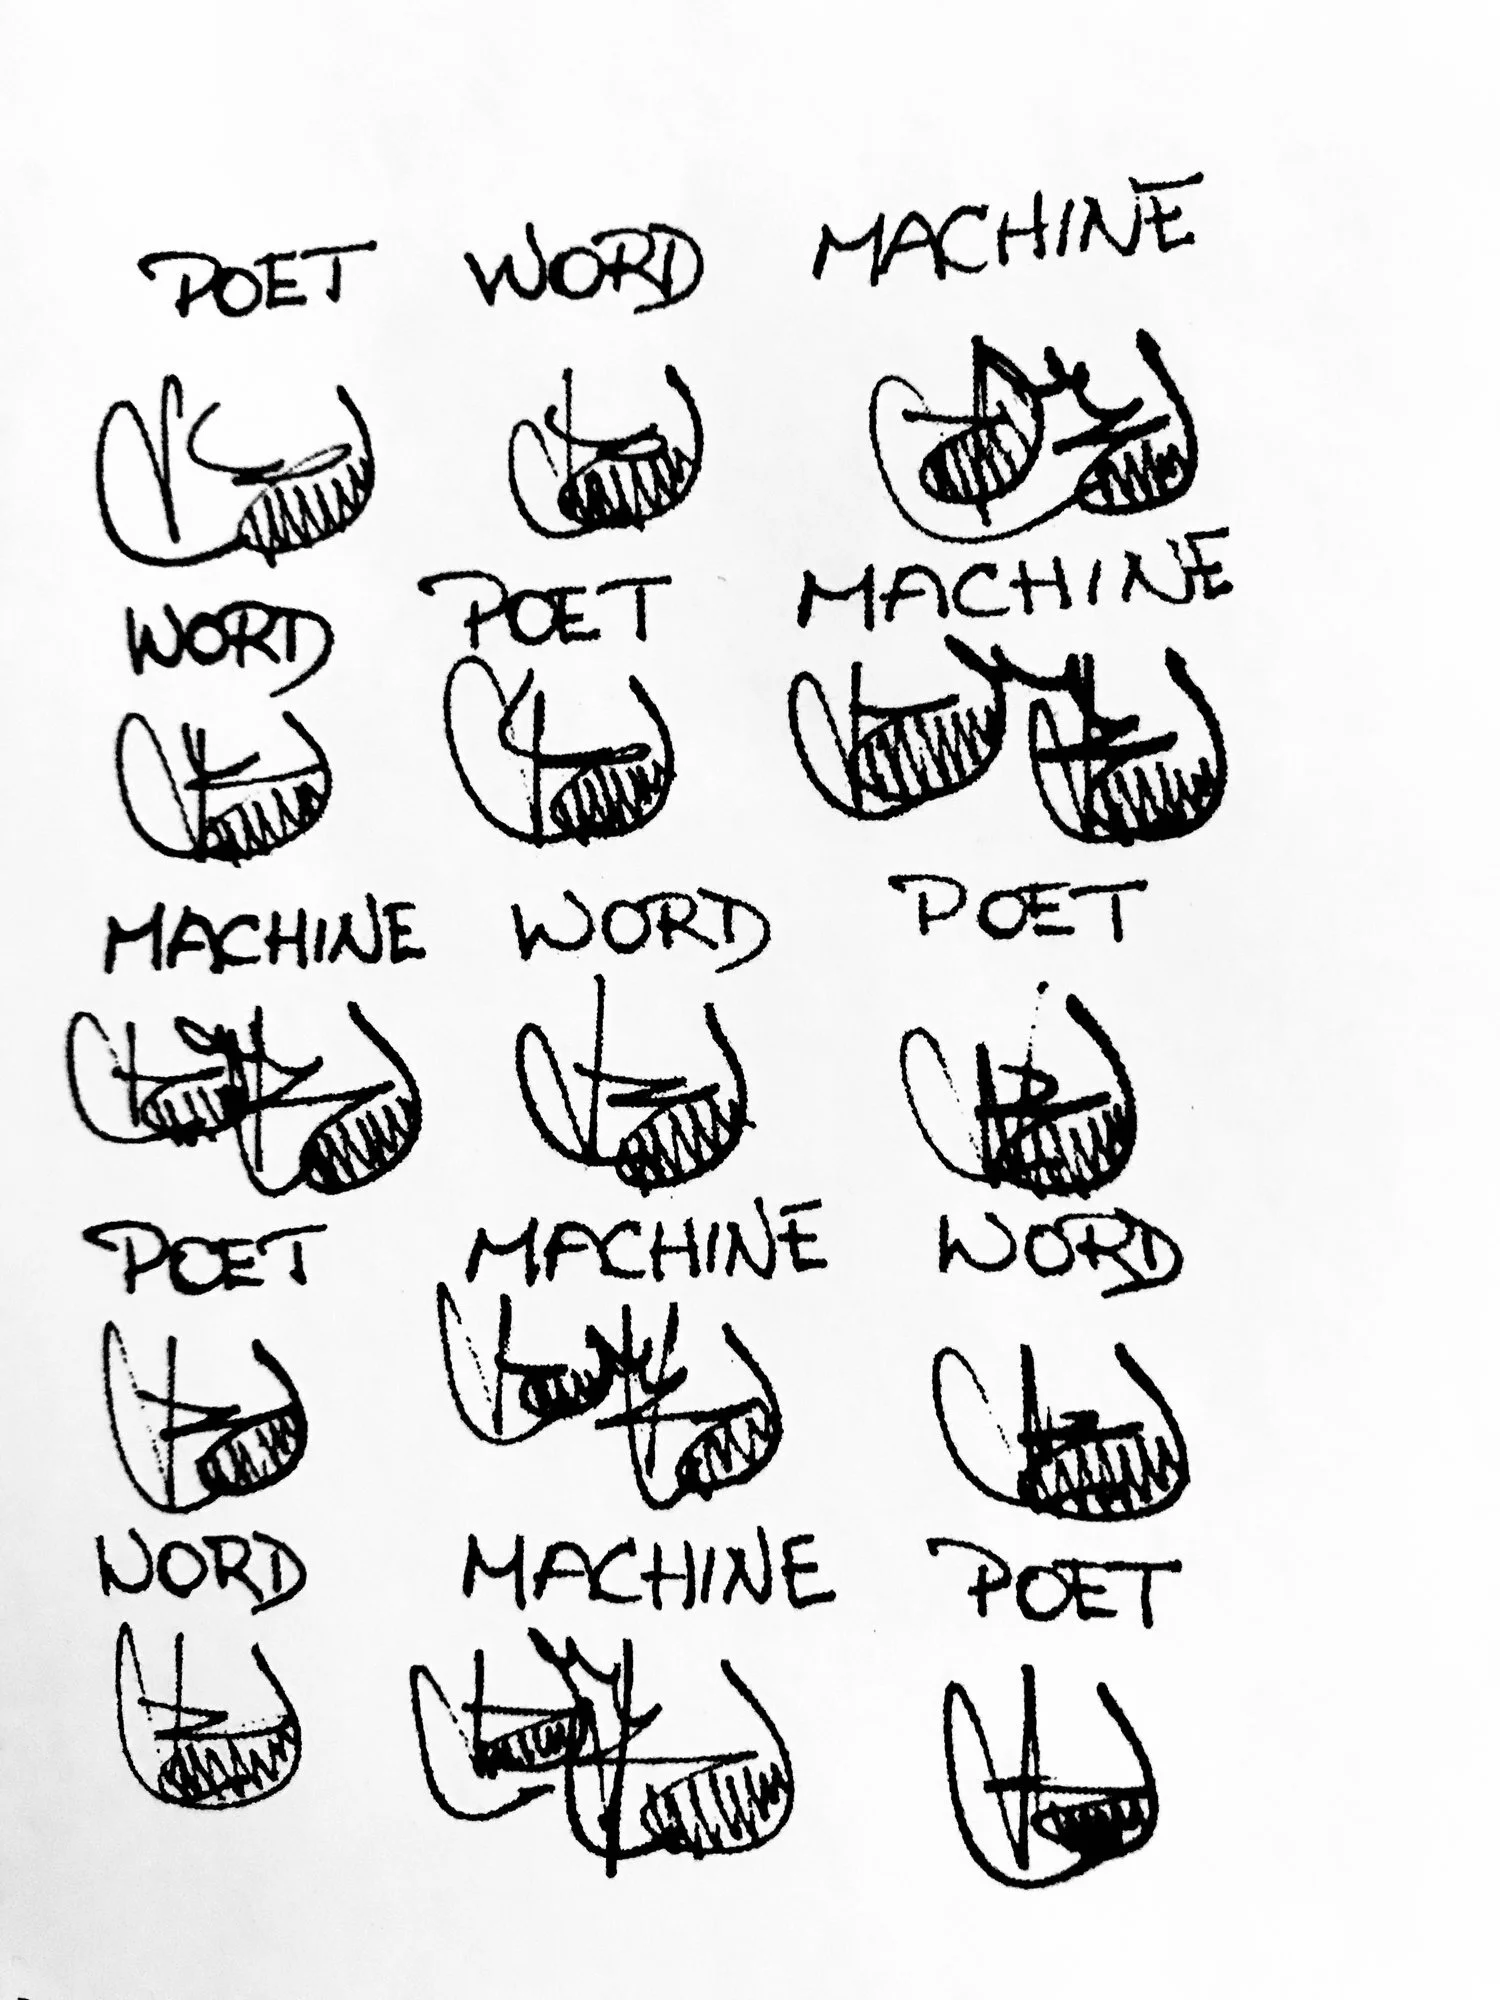 POET WORD MACHINE
WORD POET MACHINE
MACHINE WORD POET
POET MACHINE WORD
WORD MACHINE POET